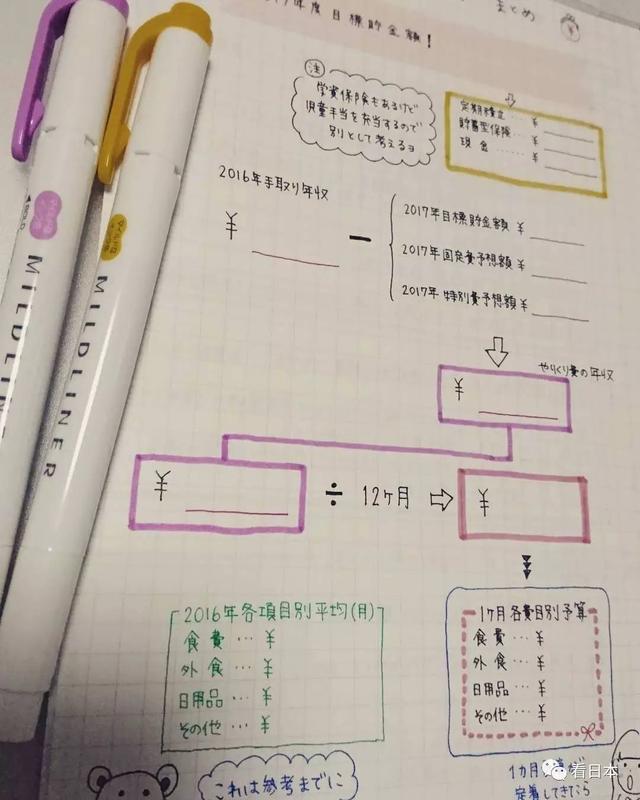 まとめ
年度目標貯金額!
注
学資保険もあるけど
児童手当を充当するので
別として考えるヨ
定期積立… ¥
貯蓄型保険… ¥
現金…… ¥
2016年手取り年収
¥
−
2017年目標貯金額 ¥
2017年固定費予想額 ¥
2017年特別費予想額 ¥
やりくり費の年収
¥
¥ ÷ 12ヶ月 ⇨ ¥
2016年各項目別平均(月)
食費… ¥
外食… ¥
日用品… ¥
その他… ¥
1ヶ月各費目別予算
食費… ¥
外食… ¥
日用品… ¥
その他… ¥
これは参考までに
1カ月
定着してきたら
MILDLINER
MILDLINER
看日本